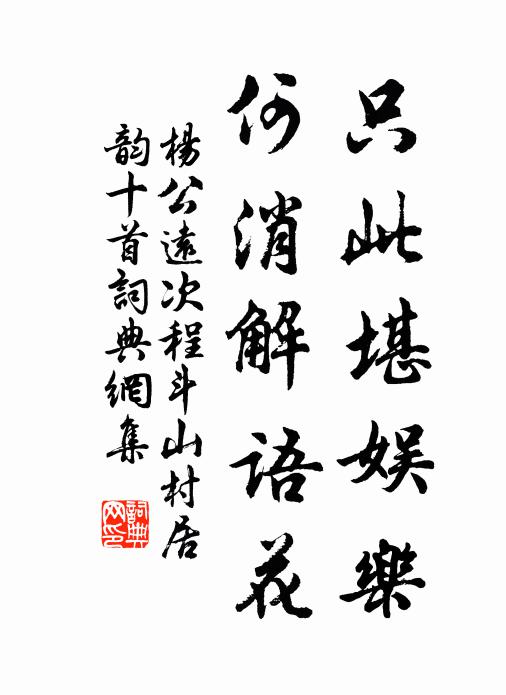 只此堪娛樂
何消解語花
楊公遠次程斗山村居
韵十首詞典網集
詞典網印